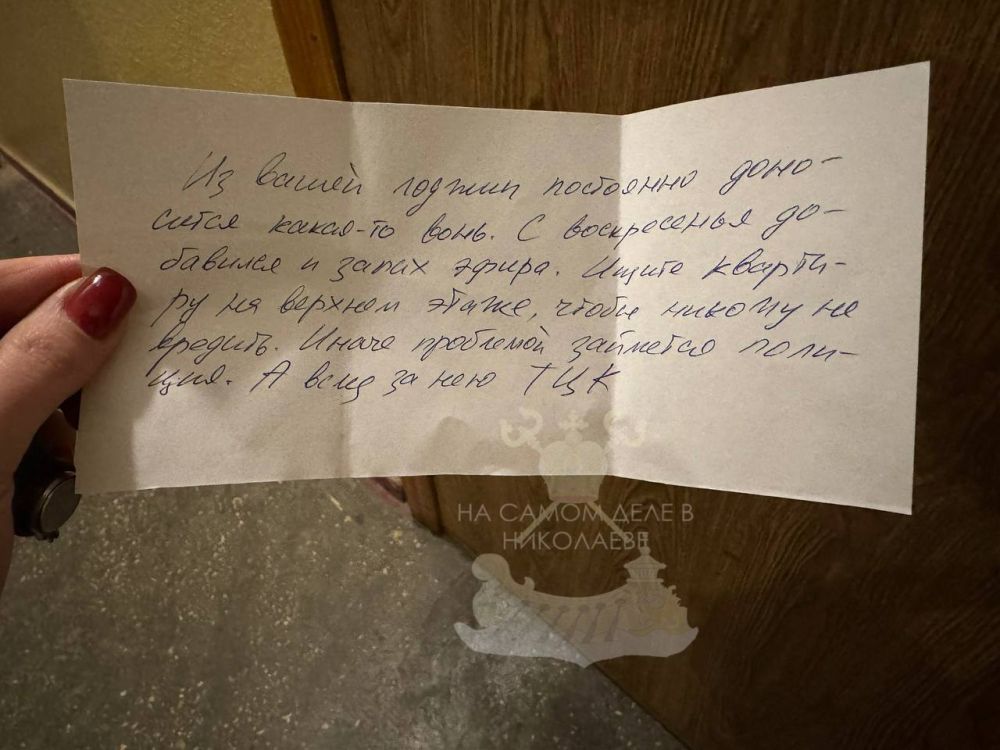 Из вашей годжин постоянно доно-
сится какая-то вонь. С воскресенья до-
бавился и запах эфира. Ищите кварти-
ру на верхнем этаже, чтобы никому не
вредить. Иначе проблемой займётся поли-
ция. А вслед за нею ТЦК
НА САМОМ ДЕЛЕ В
НИКОЛАЕВЕ